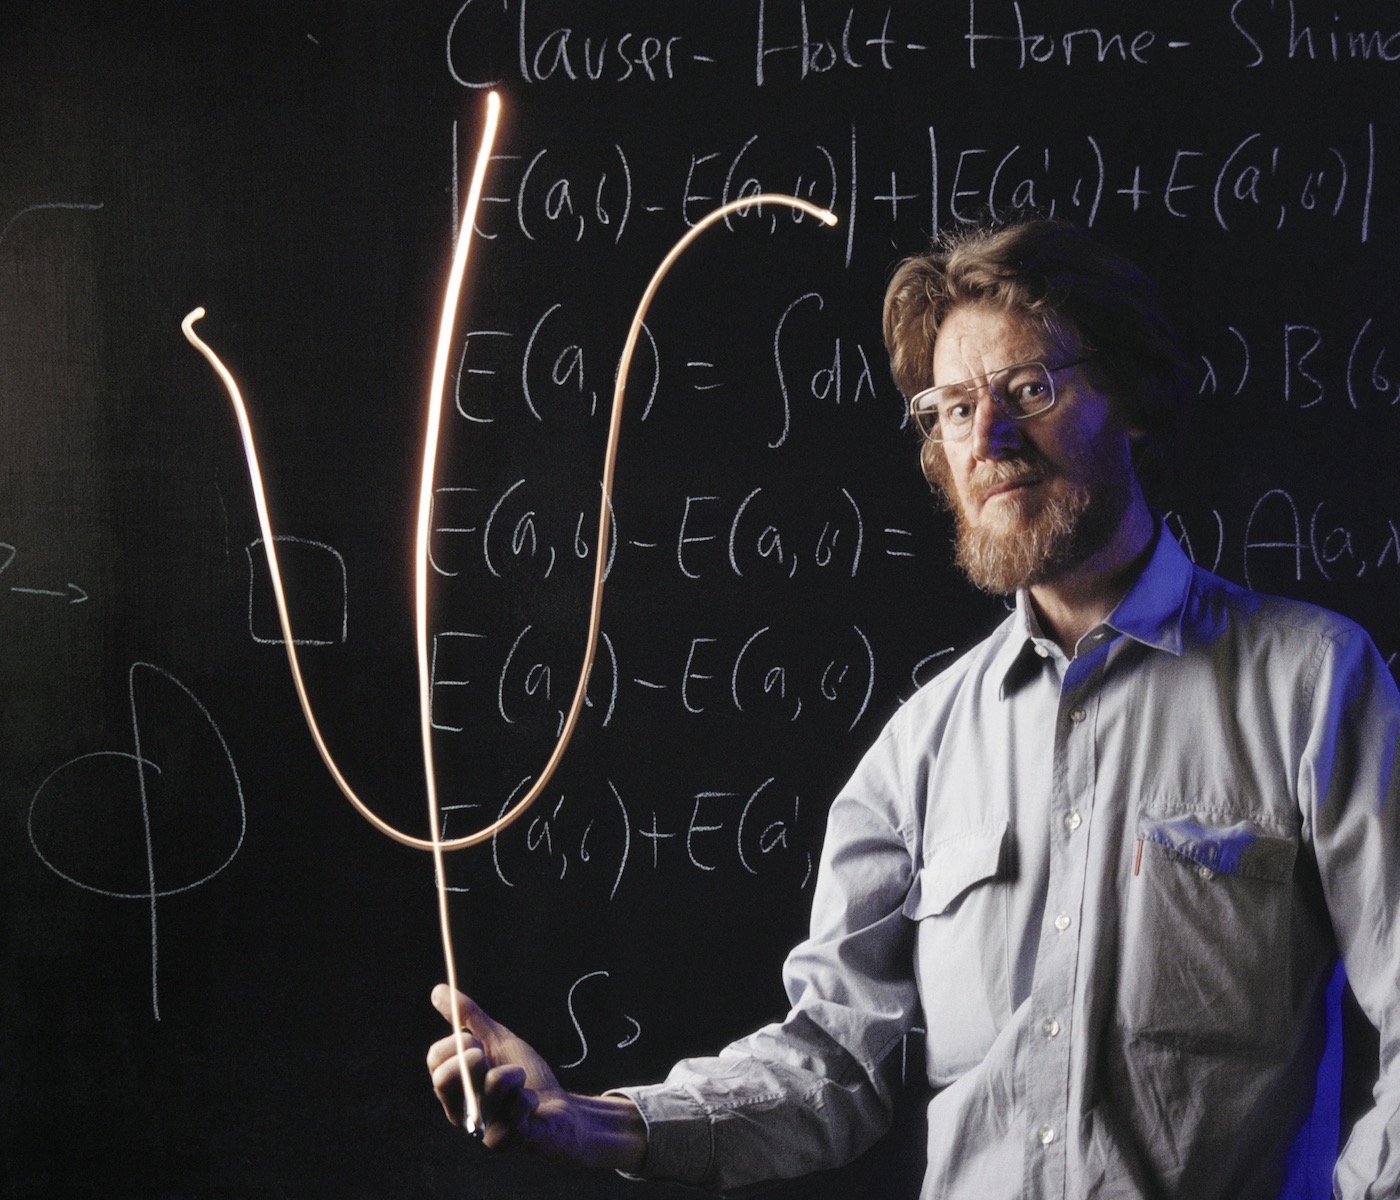 Clauser-Holt-Horne-Shimo
|E(a,b)-E(a,b')|+|E(a',b)+E(a',b')|
E(a, )= ∫dλ λ)B(b
E(a,b)-E(a,b')= λ)A(a,λ
E(a, )-E(a,b')
E(a',b)+E(a',
ψ
ϕ